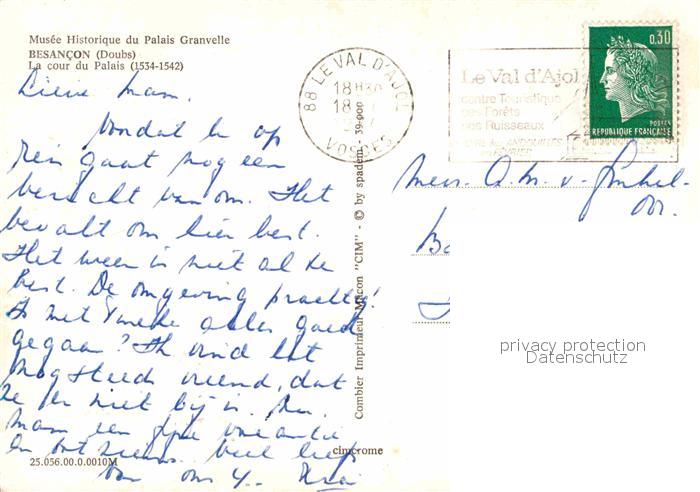 Musée Historique du Palais Granvelle
BESANÇON (Doubs)
La cour du Palais (1534-1542)
Lieve Mam.
Voordat u op
reis gaat nog een
bericht van ons. Het
bevalt ons hier best.
Het weer is niet al te
best. De omgeving prachtig!
Is met alles goed
gegaan? Ik vind het
nog steeds vreemd, dat
ze er niet bij is. Nu,
Mam een fijne vacantie
en tot ziens. Veel liefs
van ons
25.056.00.0.0010M
cimcrome
Combier Imprimeur Mâcon "CIM" - © by spadem - 39-000
88 LE VAL D'AJOL
18H30
18
VOSGES
Le Val d'Ajol
Centre Touristique
ses Forêts
ses Ruisseaux
0,30
POSTES
REPUBLIQUE FRANÇAISE
Mevr.
privacy protection
Datenschutz